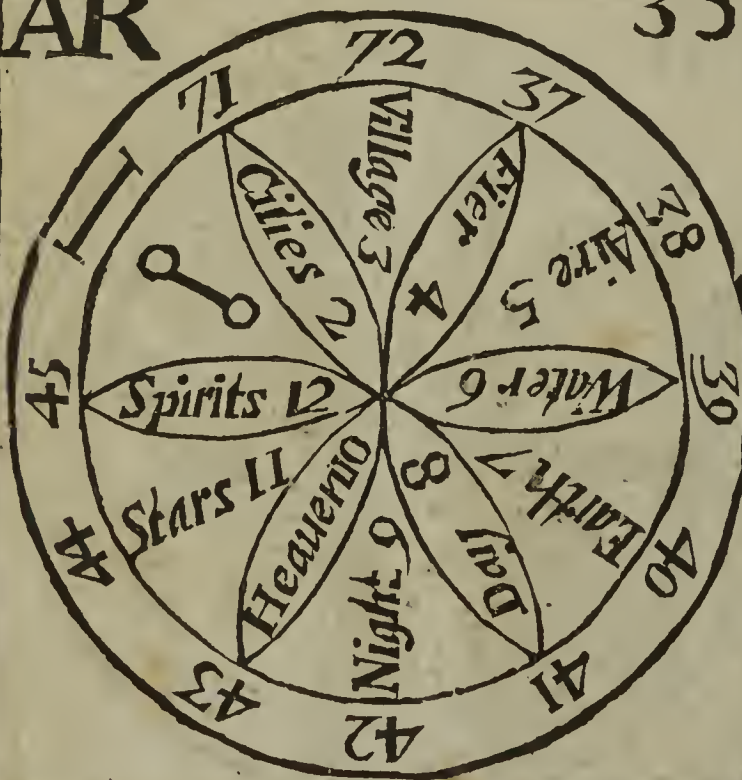 AR
35
I
71
72
37
38
39
40
41
42
43
44
45
Cities 2
Village 3
Fier 4
Aire 5
Water 6
Earth 7
Day 8
Night 9
Heauen10
Stars 11
Spirits 12